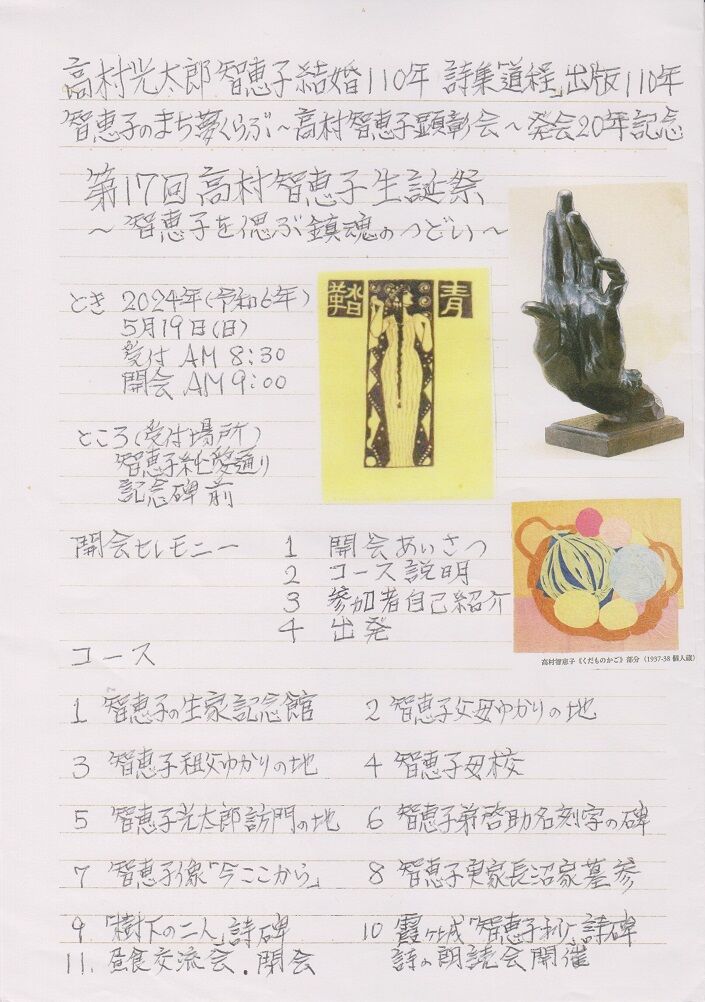 高村光太郎智恵子結婚110年 詩集「道程」出版110年
智恵子のまち夢くらぶ～高村智恵子顕彰会～発会20年記念
第17回高村智恵子生誕祭
～智恵子を偲ぶ鎮魂のつどい～
とき 2024年(令和6年)
5月19日(日)
受付 AM 8:30
開会 AM 9:00
鞜 青
ところ(受付場所)
智恵子純愛通り
記念碑前
開会セレモニー 1 開会あいさつ
2 コース説明
3 参加者自己紹介
4 出発
高村智恵子《くだものかご》部分 (1937-38 個人蔵)
コース
1 智恵子の生家記念館 2 智恵子父母ゆかりの地
3 智恵子祖父ゆかりの地 4 智恵子母校
5 智恵子光太郎訪問の地 6 智恵子弟啓助名刻字の碑
7 智恵子像「今ここから」 8 智恵子実家長沼家墓参
9 「樹下の二人」詩碑 10 霞ヶ城「智恵子抄」詩碑
11. 昼食交流会.閉会 詩の朗読会開催